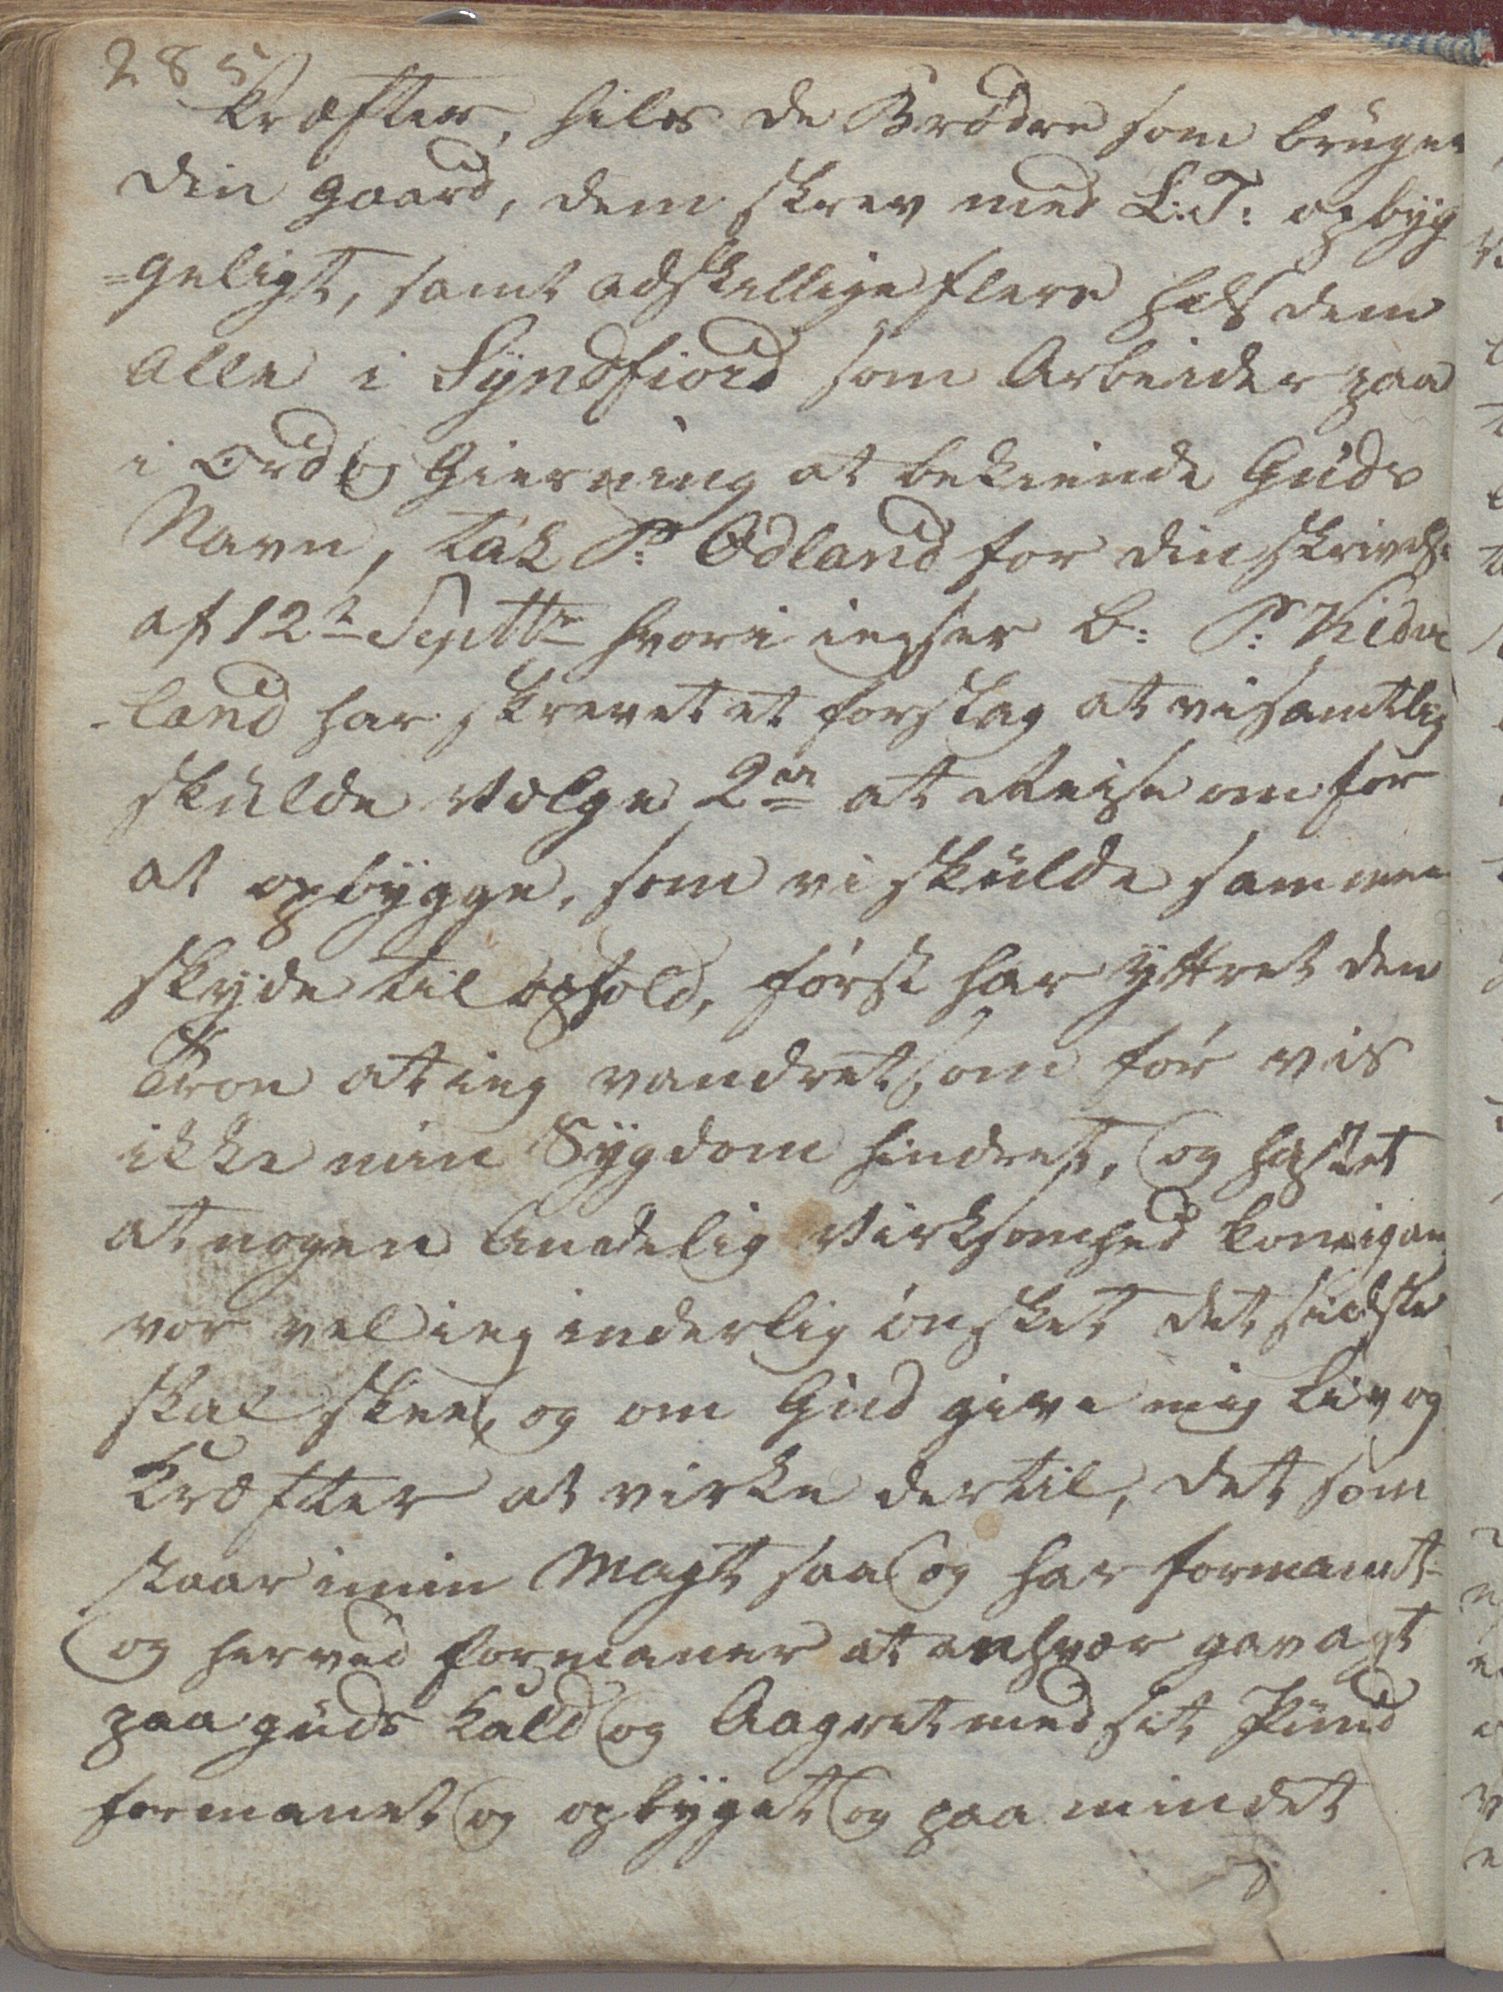 285
Kræfter, hils de Brødre som bruger
din gaard, dem skrev med L: T: opbyg
=geligt, samt adskellige flere hils dem
alle i Syndfiord som Arbeider paa
i Ord og Gierning at bekiende Guds
Navn, tak P: Odland for din skrivelse
af 12te Septbr hvori ieg ser B: P: Kidve
-land har skrevet et forslag at vi samtlig
skulde vælge 2de at Reise om for
at opbygge, som vi skulde sammen
skyde til ophold, først har yttret den
Troe at ieg vandret som før vis
ikke min Sygdom hindret, og haabet
at nogen Aandelig Virksomhed kom igang
vor vel ieg inderlig ønsket det sidste
skal skee, og om Gud give mig Liv og
Kræfter at virke dertil, det som
staar i min Magt saa og har formant
og herved formaner at enhver gav agt
paa guds kald og Aagret med sit Pund
formanet og opbyget og paa mindet